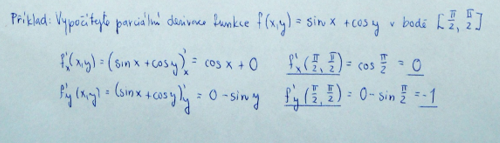 Příklad: Vypočítejte parciální derivace funkce f(x,y) = sin x + cos y v bodě [π/2, π/2]
f'x(x,y) = (sin x + cos y)'x = cos x + 0 f'x(π/2, π/2) = cos π/2 = 0
f'y(x,y) = (sin x + cos y)'y = 0 - sin y f'y(π/2, π/2) = 0 - sin π/2 = -1